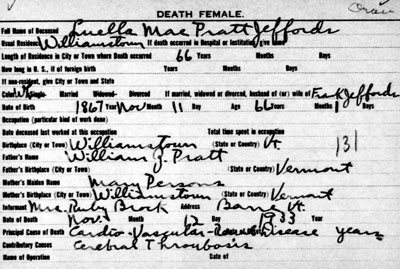 DEATH FEMALE.
Full Name of Deceased Luella Mae Pratt Jeffords
Usual Residence Williamstown If death occurred in Hospital or Institution give
Length of Residence in City or Town where Death occurred 66 Years Months Days
How long in U. S., if of foreign birth Years Months Days
If non-resident, give City or Town and State
Color Wh Single Married Widowed Divorced If married, widowed or divorced, husband of (or) wife of Frank Jeffords
Date of Birth 1867 Year Nov Month 11 Day Age 66 Years Months 1 Days
Occupation (particular kind of work done)
Date deceased last worked at this occupation Total time spent in occupation
Birthplace (City or Town) Williamstown (State or Country) Vt. 131
Father's Name William J. Pratt
Father's Birthplace (City or Town) (State or Country) Vermont
Mother's Maiden Name Mary Persons
Mother's Birthplace (City or Town) Williamstown (State or Country) Vermont
Informant Mrs. Ruby Brock Address Barre Vt.
Date of Death Nov. Month 12 Day 1933 Year
Principal Cause of Death Cardio-Vascular-Renal Disease years
Contributory Causes Cerebral Thrombosis
Name of Operation Date of